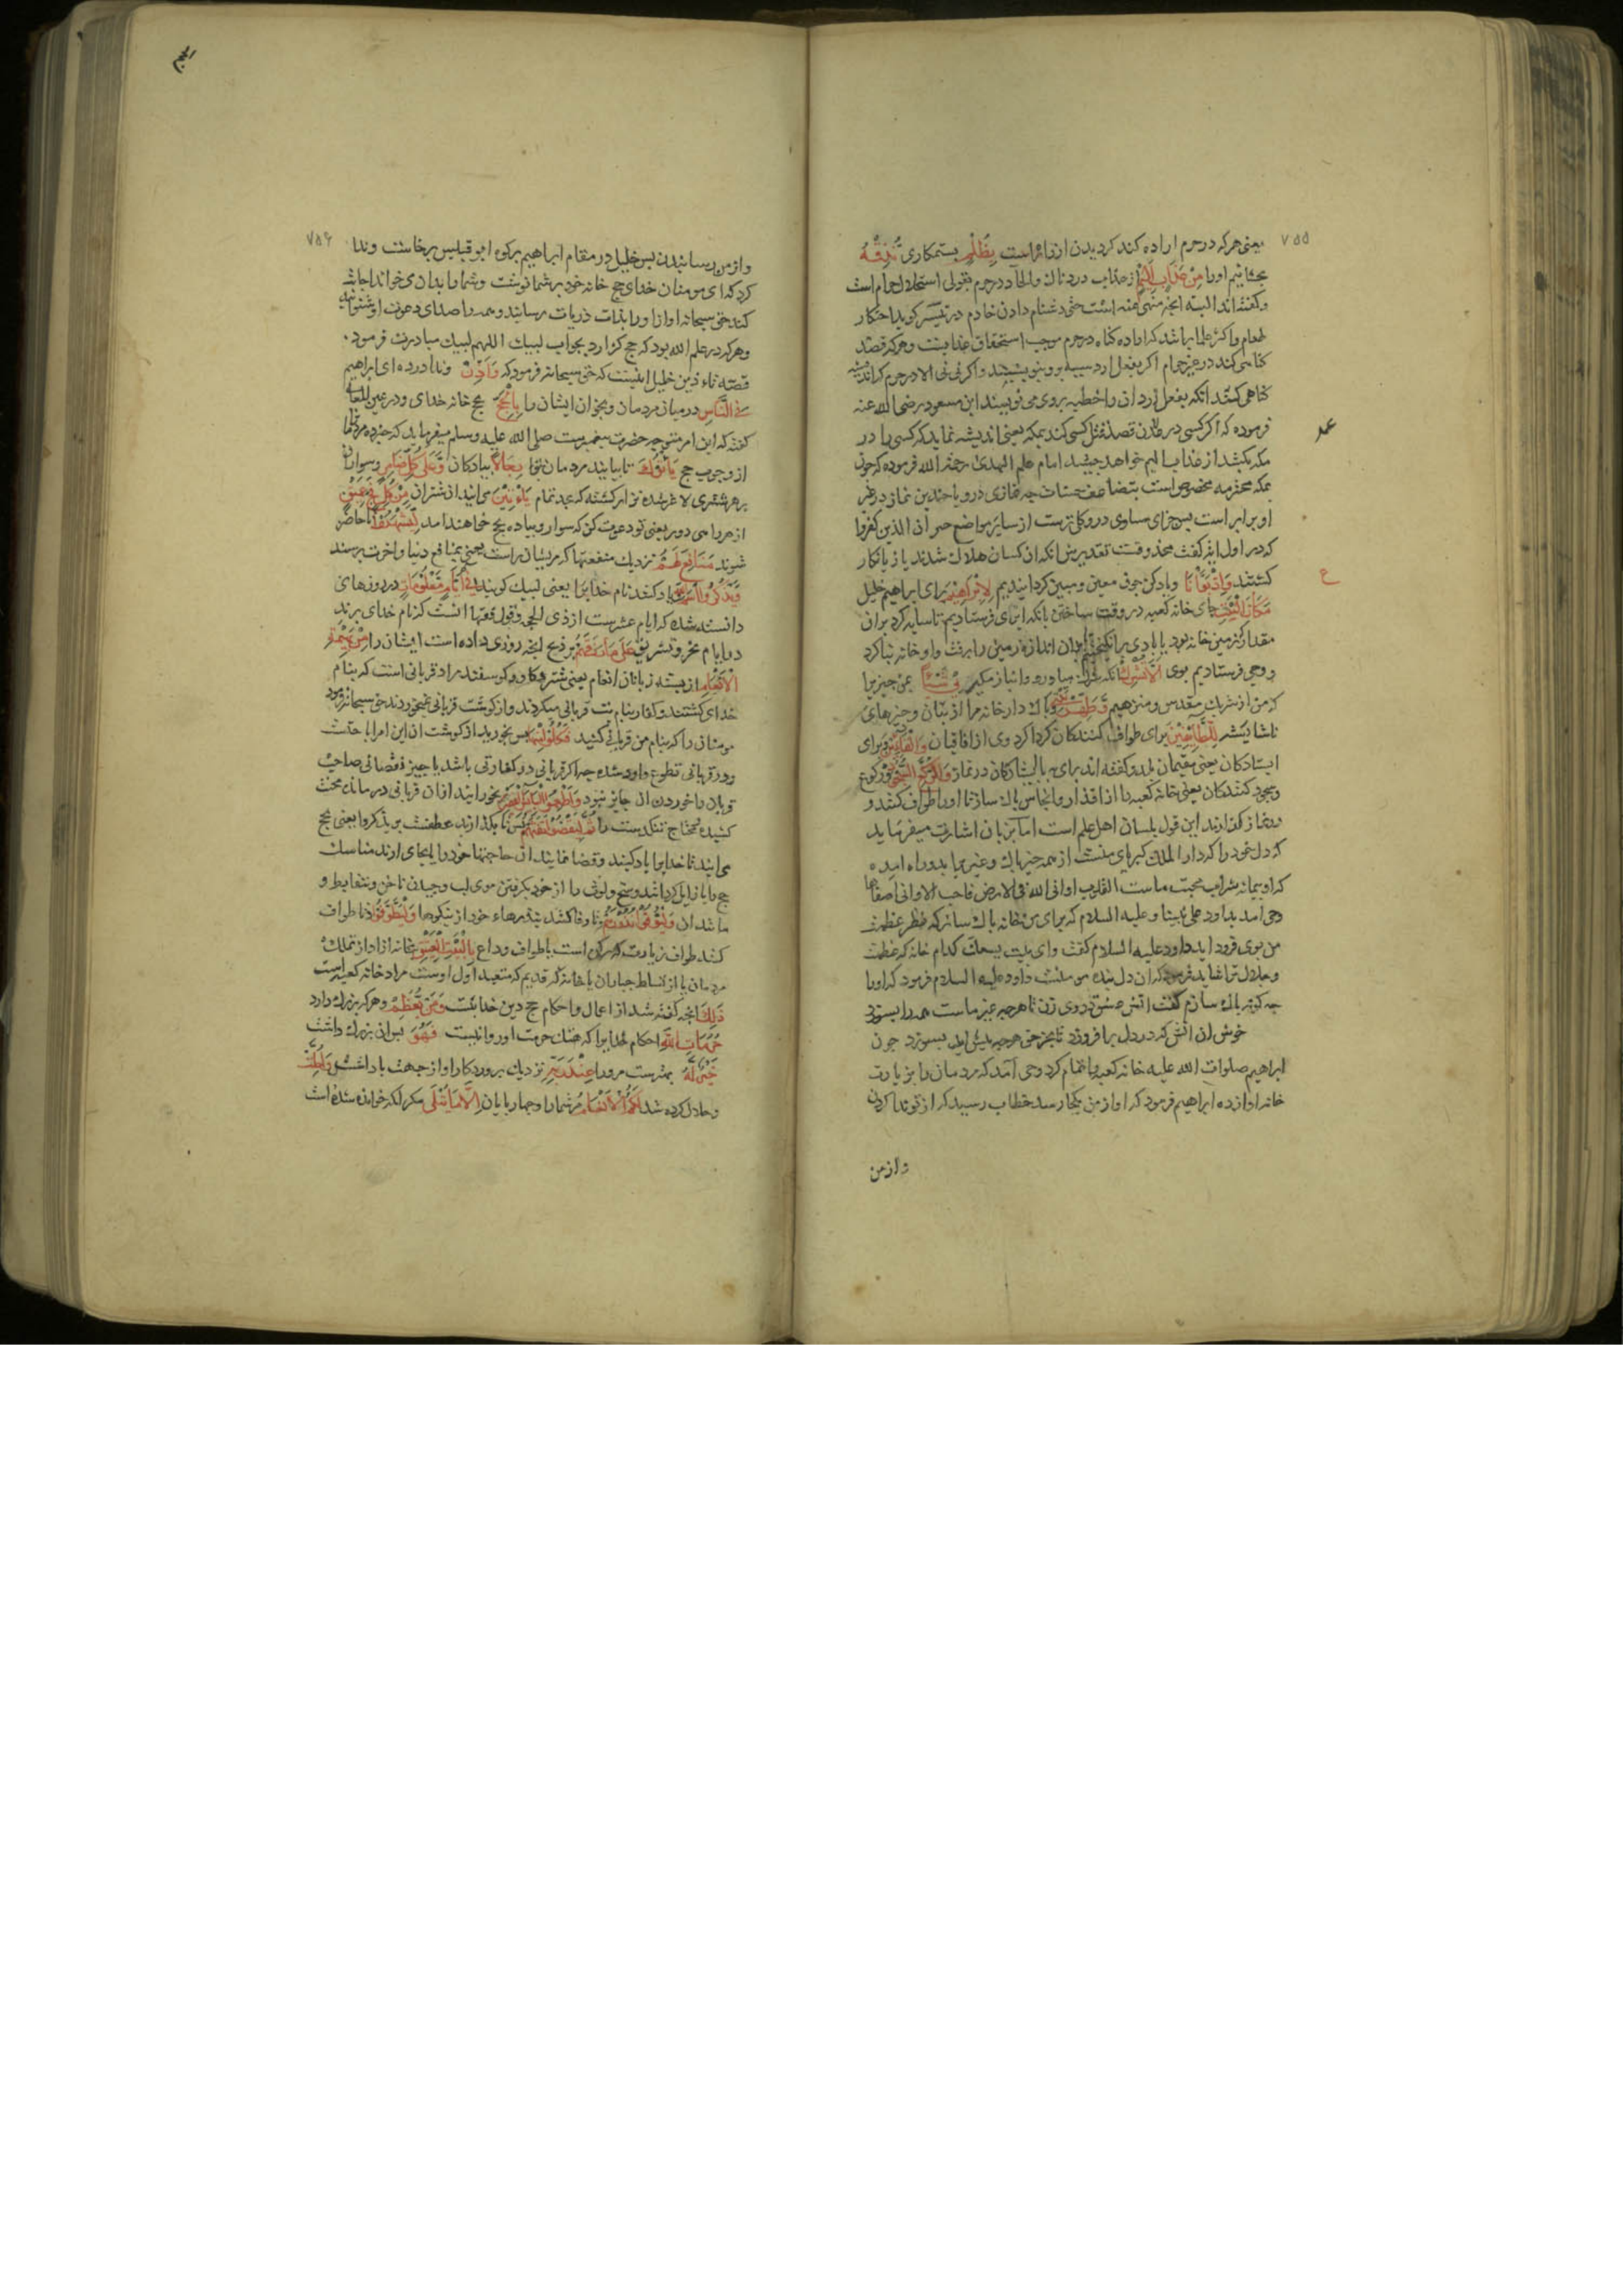 ۷۵۵
یعنی هرکه در حرم اراده کند کردیدن از راه راست بِظُلْمٍ بستمکاری نُذِقْهُ
بچشانیم اورا مِنْ عَذَابٍ اَلِیْمٍ از عذاب دردناك و الحاد در حرم بقولی استحلال حرام است
و کفته اند البته انچه منهی عنه است حتی دشنام دادن خادم در تیسیر کوید احتکار
طعام و اکثر علما برانند که اراده کناه در حرم موجب استحقاق عذابست و هرکه قصد
کناهی کند در غیر حرام اکر بفعل ارد سییه برو بنویسند و اکر نی نی الا در حرم که اندیشه
کناهی کند انکه بفعل نیارد ان را خطیه بروی می نویسند ابن مسعود رضی الله عنه
فرموده که اکر کسی در عدن قصد قتل کسی کند بمکه یعنی اندیشه نماید که کسی را در
مکه بکشد از عذاب الیم خواهد چشید امام علم الهدی رحمه الله فرموده که چون
مکه محترمه مخصوص است بتضاعف حسنات چه نمازی درو با چندین نماز در غیر
او برابر است پس جزای مساوی درو کلی ترست از سایر مواضع خبر ان الذین کفروا
که در اول ایه کفت محذوفست تقدیرش انکه ان کسان هلاك شدند یا زیانکار
کشتند وَاِذْ بَوَّاْنَا و یاد کن چون معین و مبین کردانیدیم لِاِبْرَاهِیْمَ برای ابراهیم خلیل
مَکَانَ الْبَیْتِ جای خانه کعبه در وقت ساختن بانکه ابرای فرستادیم تا سایه کرد بران
مقدار که زمین خانه بود یا بادی برانکیختیم تا بدان اندازه زمین را برفت و او خانه بنا کرد
و وحی فرستادیم بوی اَلَّا تُشْرِكْ انکه شریك میار و انباز مکیر بِیْ شَیْئًا بمن چیزیرا
که من از شریك مقدس و منزهم وَّطَهِّرْ بَیْتِیَ و پاك دار خانه مرا از بتان و چیزهای
ناشایسته لِلطَّآئِفِیْنَ برای طواف کنندکان کرداکرد وی از افاقیان وَالْقَآئِمِیْنَ و برای
ایستادکان یعنی مقیمان بلد و کفته اند برای بپا ایستادکان در نماز وَالرُّکَّعِ السُّجُوْدِ و رکوع
و سجود کنندکان یعنی خانه کعبه را از اقذار و انجاس پاك ساز تا اورا طواف کنند و
درو نماز کذارند این قول بلسان اهل علم است اما بزبان اشارت میفرماید
که دل خود را که دار الملك کبریای منست از همه چیز پاك و غیریرا بدو راه مده
که او پیمانه شراب محبت ماست القلوب اوانی الله فی الارض فاحب الاوانی اصفاها
وحی امد بداود علی نبینا و علیه السلام که برای من خانه پاك ساز که نظر عظمت
من بوی فرود اید داود علیه السلام کفت وای بیت یسعك کدام خانه که عظمت
و جلال ترا شاید فرمود که ان دل بنده مومنست داود علیه السلام فرمود که اورا
چه کونه پاك سازم کفت اتش عشق در وی زن تا هرچه غیر ماست همه را بسوزد
خوش ان اتش که در دل برافروزد تا بجز حق هرچه پیش اید بسوزد چون
ابراهیم صلوات الله علیه خانه کعبه را تمام کرد وحی آمد که مردمان را بزیارت
خانه آواز ده ابراهیم فرمود که اواز من بکجا رسد خطاب رسید که از تو ندا کردن
واز من
عمد
ع
الحج
۷۵۶
و از من رسانیدن پس خلیل در مقام ابراهیم بر کوه ابو قبیس برخاست و ندا
کرد که ای مومنان خدای حج خانه خود بر شما نوشت و شمارا بدان می خواند اجابت
کنند حق سبحانه اواز اورا بذات ذریات رسانید و همه را صدای دعوت او شنوانید
و هرکه در علم الله بود که حج کزارد بجواب لبیك اللهم لبیك مبادرت فرمود
قصه نداء ذین خلیل اینست که حق سبحانه فرمود که وَاَذِّنْ و ندا در ده ای ابراهیم
فِی النَّاسِ در میان مردمان و بخوان ایشان را بِالْحَجِّ بحج خانه خدای و در عین المعانی
کفته که این امر متوجه حضرت پیغمبرست صلی الله علیه وسلم میفرماید که خبر ده مردمانرا
از وجوب حج یَاْتُوْكَ تا بیایند مردمان بتو رِجَالًا پیادکان وَّعَلٰی کُلِّ ضَامِرٍ و سواران
بر هر شتری لاغر شده نزار کشته که بعد تمام یَاْتِیْنَ می ایند ان شتران مِنْ کُلِّ فَجٍّ عَمِیْقٍ
از هر راهی دور یعنی تو دعوت کن که سوار و پیاده بحج خواهند امد لِّیَشْهَدُوْا تا حاضر
شوند مَنَافِعَ لَهُمْ نزدیك منفعتها که مر ایشان راست یعنی بمنافع دنیا و اخرت برسند
وَیَذْکُرُوا اسْمَ اللّٰهِ و یاد کنند نام خدایرا یعنی لبیك کویند فِیْ اَیَّامٍ مَّعْلُوْمَاتٍ در روزهای
دانسته شده که ایام عشرست از ذی الحجه و قول فقها انست که نام خدای برند
در ایام نحر و تشریق عَلٰی مَا رَزَقَهُمْ بر ذبح انچه روزی داده است ایشان را مِنْ بَهِیْمَةِ
الْاَنْعَامِ از بسته زبانان انعام یعنی شتر و کاو و کوسفند مراد قربانی است که بنام
خدای کشتند و کفار بنام بت قربانی میکردند و از کوشت قربانی نمیخوردند حق سبحانه فرمود
مومنان را که بنام من قربانی کنید فَکُلُوْا مِنْهَا پس بخورید از کوشت ان این امر اباحتست
و در قربانی تطوع وارد شده چه اکر قربانی در کفارتی باشد یا جبر نقصانی صاحب
قربان را خوردن ان جایز نبود وَاَطْعِمُوا الْبَآئِسَ الْفَقِیْرَ و بخورانید از ان قربانی درمانده محنت
کشیده محتاج تنکدست را ثُمَّ لْیَقْضُوْا تَفَثَهُمْ پس تا بکذارند عطفست بر یذکروا یعنی بحج
می ایند تا خدایرا یاد کنند و قضا نمایند ان حاجتها خود را یا بجای ارند مناسك
حج را یا زایل کردانند وسخ و لوث را از خود بکرفتن موی لب و چیدن ناخن و نتف ابط و
مانند ان وَلْیُوْفُوْا نُذُوْرَهُمْ و تا وفا کنند بنذرهاء خود از نیکوها وَلْیَطَّوَّفُوْا و تا طواف
کنند طواف زیارت که رکن است یا طواف وداع بِالْبَیْتِ الْعَتِیْقِ بخانه ازاد از تملك
مردمان یا از تسلط جباران یا خانه که قدیم که متعبد اول اوست مراد خانه کعبه است
ذٰلِكَ انچه کفته شد از اعمال و احکام حج دین خدایست وَمَنْ یُّعَظِّمْ و هرکه بزرك دارد
حُرُمَاتِ اللّٰهِ احکام خدایرا که هتك حرمت او روا نیست فَهُوَ پس ان بزرك داشت
خَیْرٌ لَّهٗ بهترست مر اورا عِنْدَ رَبِّهٖ نزدیك پروردکار او از جهت پاداشت وَاُحِلَّتْ
و حلال کرده شد لَکُمُ الْاَنْعَامُ مر شمارا چهارپایان اِلَّا مَا یُتْلٰی مکر انکه خوانده شده است